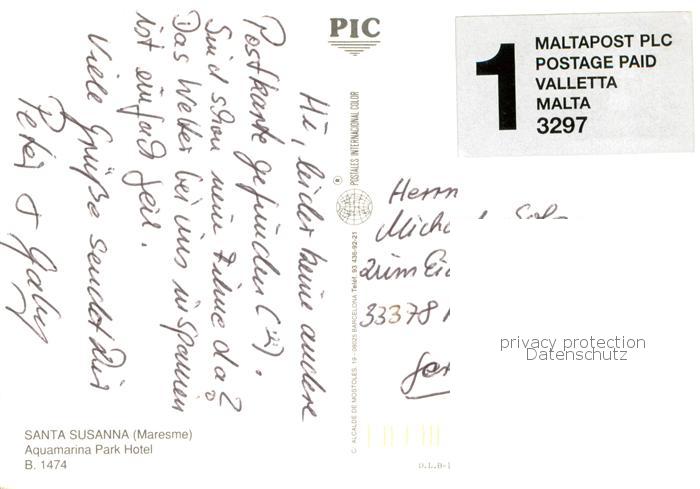 PIC
1
MALTAPOST PLC
POSTAGE PAID
VALLETTA
MALTA
3297
Hi, leider keine andere
Postkarte gefunden
Sind schon neue Filme da?
Das Wetter bei uns in Spanien
ist einfach geil.
Viele Grüße sendet Dir
Peter & Gaby
POSTALES INTERNACIONAL COLOR
®
C. ALCALDE DE MOSTOLES, 19 - 08025 BARCELONA Teléf. 93 436-92-21
Herrn
33378
privacy protection
Datenschutz
SANTA SUSANNA (Maresme)
Aquamarina Park Hotel
B. 1474
D.L.B-